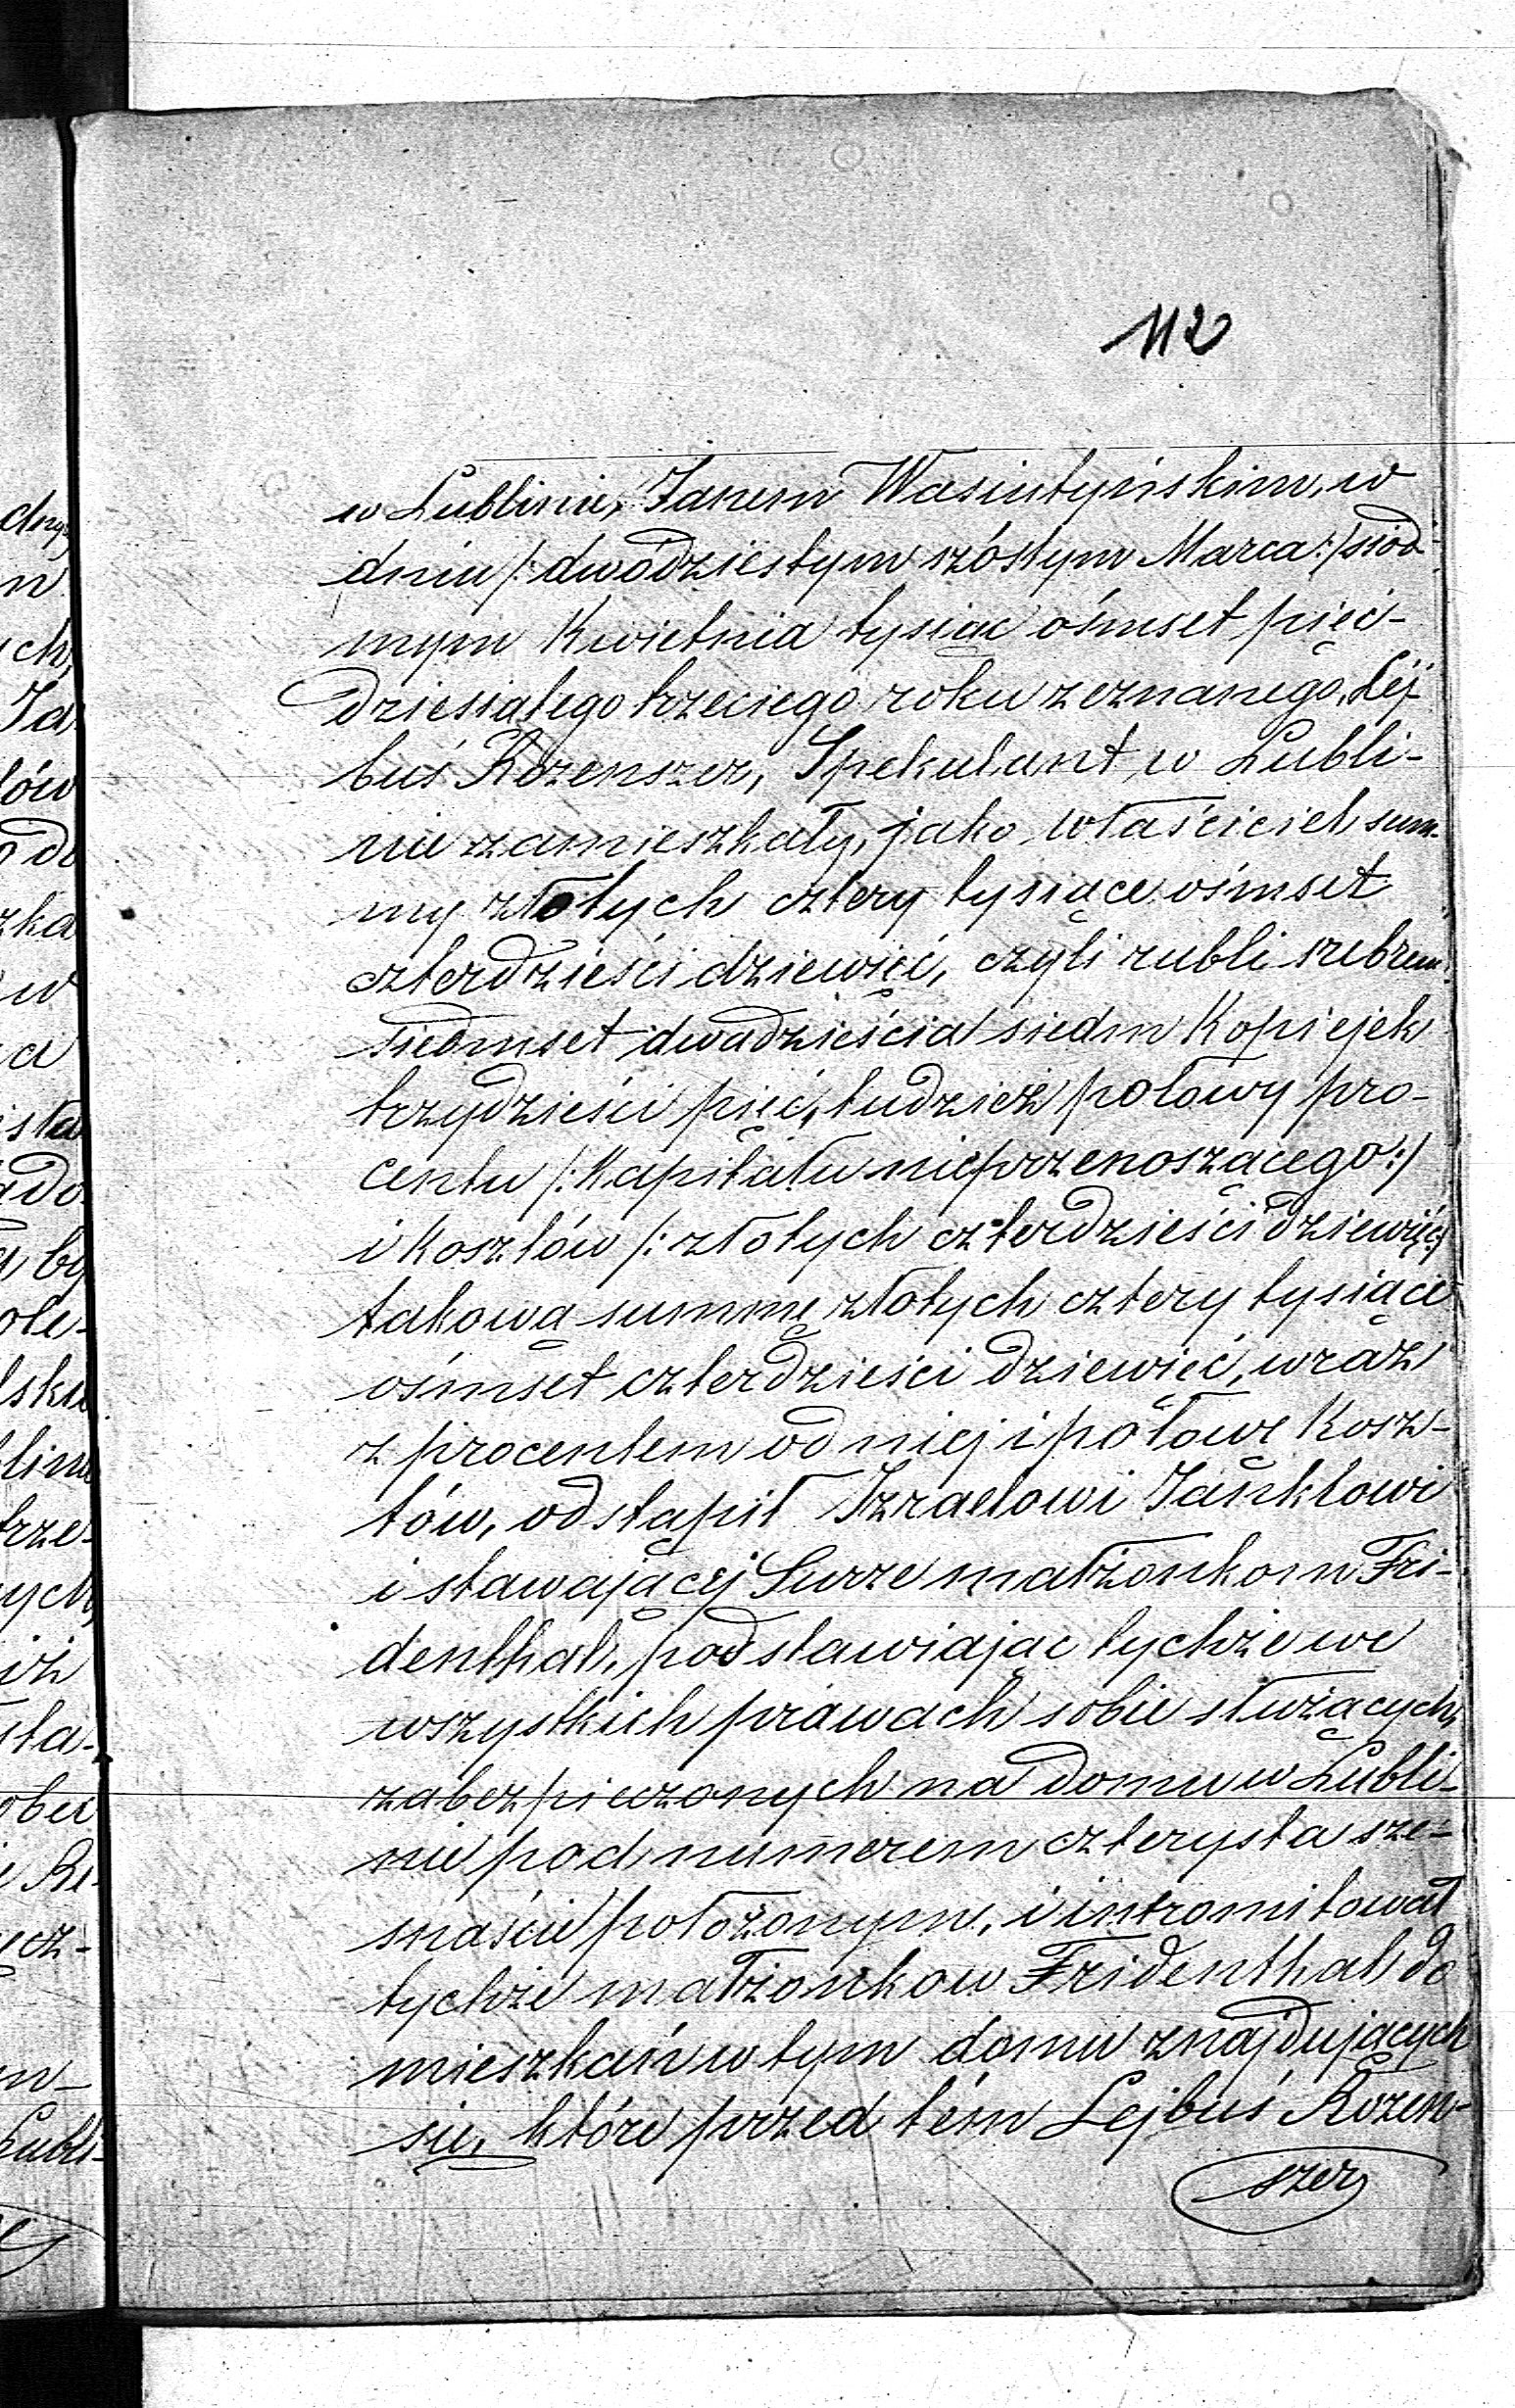 112
w Lublinie, Janem Wasiutyńskim, w
dniu /: dwudziestym szóstym Marca :/ siód-
mym Kwietnia tysiąc ośmset pięć-
dziesiątego trzeciego roku zeznanego, Lej
buś Rozenszer, Spekulant w Lubli-
nie zamieszkały, jako właściciel sum-
my złotych cztery tysiące ośmset
czterdzieści dziewięć, czyli rubli srebrem
siedmset dwadzieścia siedm Kopiejek
trzydzieści pięć, tudzież połowy pro-
centu /: Kapitału nieprzenoszącego :/
i Kosztów /: złotych czterdzieści dziewięć :/
takową summę złotych cztery tysiące
ośmset czterdzieści dziewięć, wraz
z procentem od niej i połowę Kosz-
tów, odstąpił Izraelowi Janklowi
i stawającej Surze małżonkom Fri-
denthal, podstawiając tychże we
wszystkich prawach sobie służących,
zabezpieczonych na domu w Lubli-
nie pod numerem czterysta sze-
snaście położonym, i intromitował
tychże małżonkow Fridenthal do
mieszkań w tym domu znajdujących
się, które przed tém Lejbuś Rozen-
szer